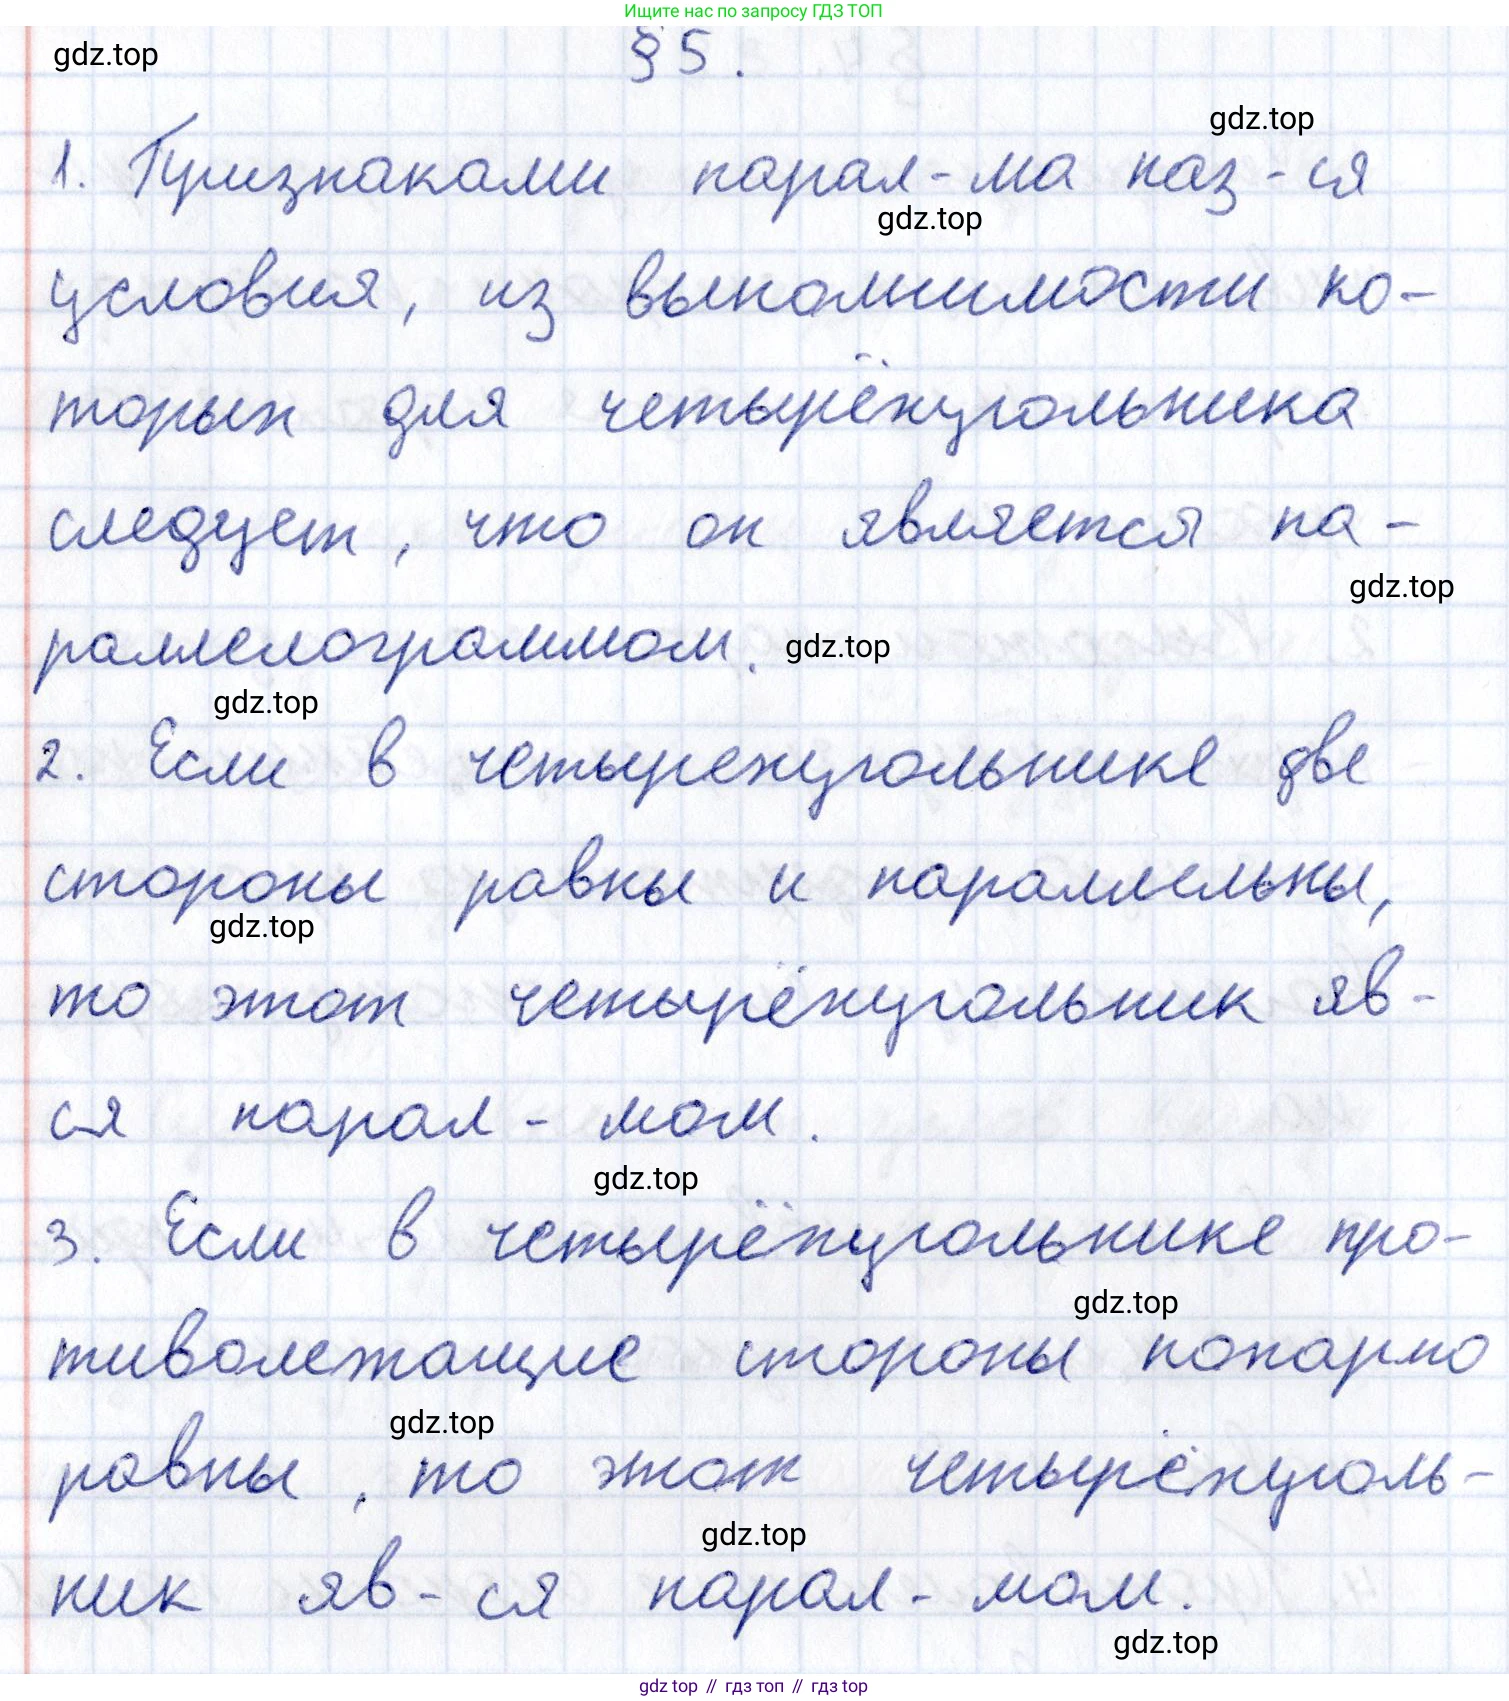 Ищите нас по запросу ГДЗ ТОП
§ 5.
gdz.top
gdz.top
1. Признаками парал-ма наз-ся
gdz.top
условия, из выполнимости ко-
торых для четырёхугольника
следует, что он является па-
gdz.top
раллелограммом.
gdz.top
gdz.top
2. Если в четырехугольнике две
стороны равны и параллельны,
gdz.top
то этот четырёхугольник яв-
ся парал-мом.
gdz.top
3. Если в четырёхугольнике про-
gdz.top
тиволежащие стороны попарно
gdz.top
равны, то этот четырёхуголь-
gdz.top
ник яв-ся парал-мом.
gdz.top
gdz top // гдз топ // гдз top